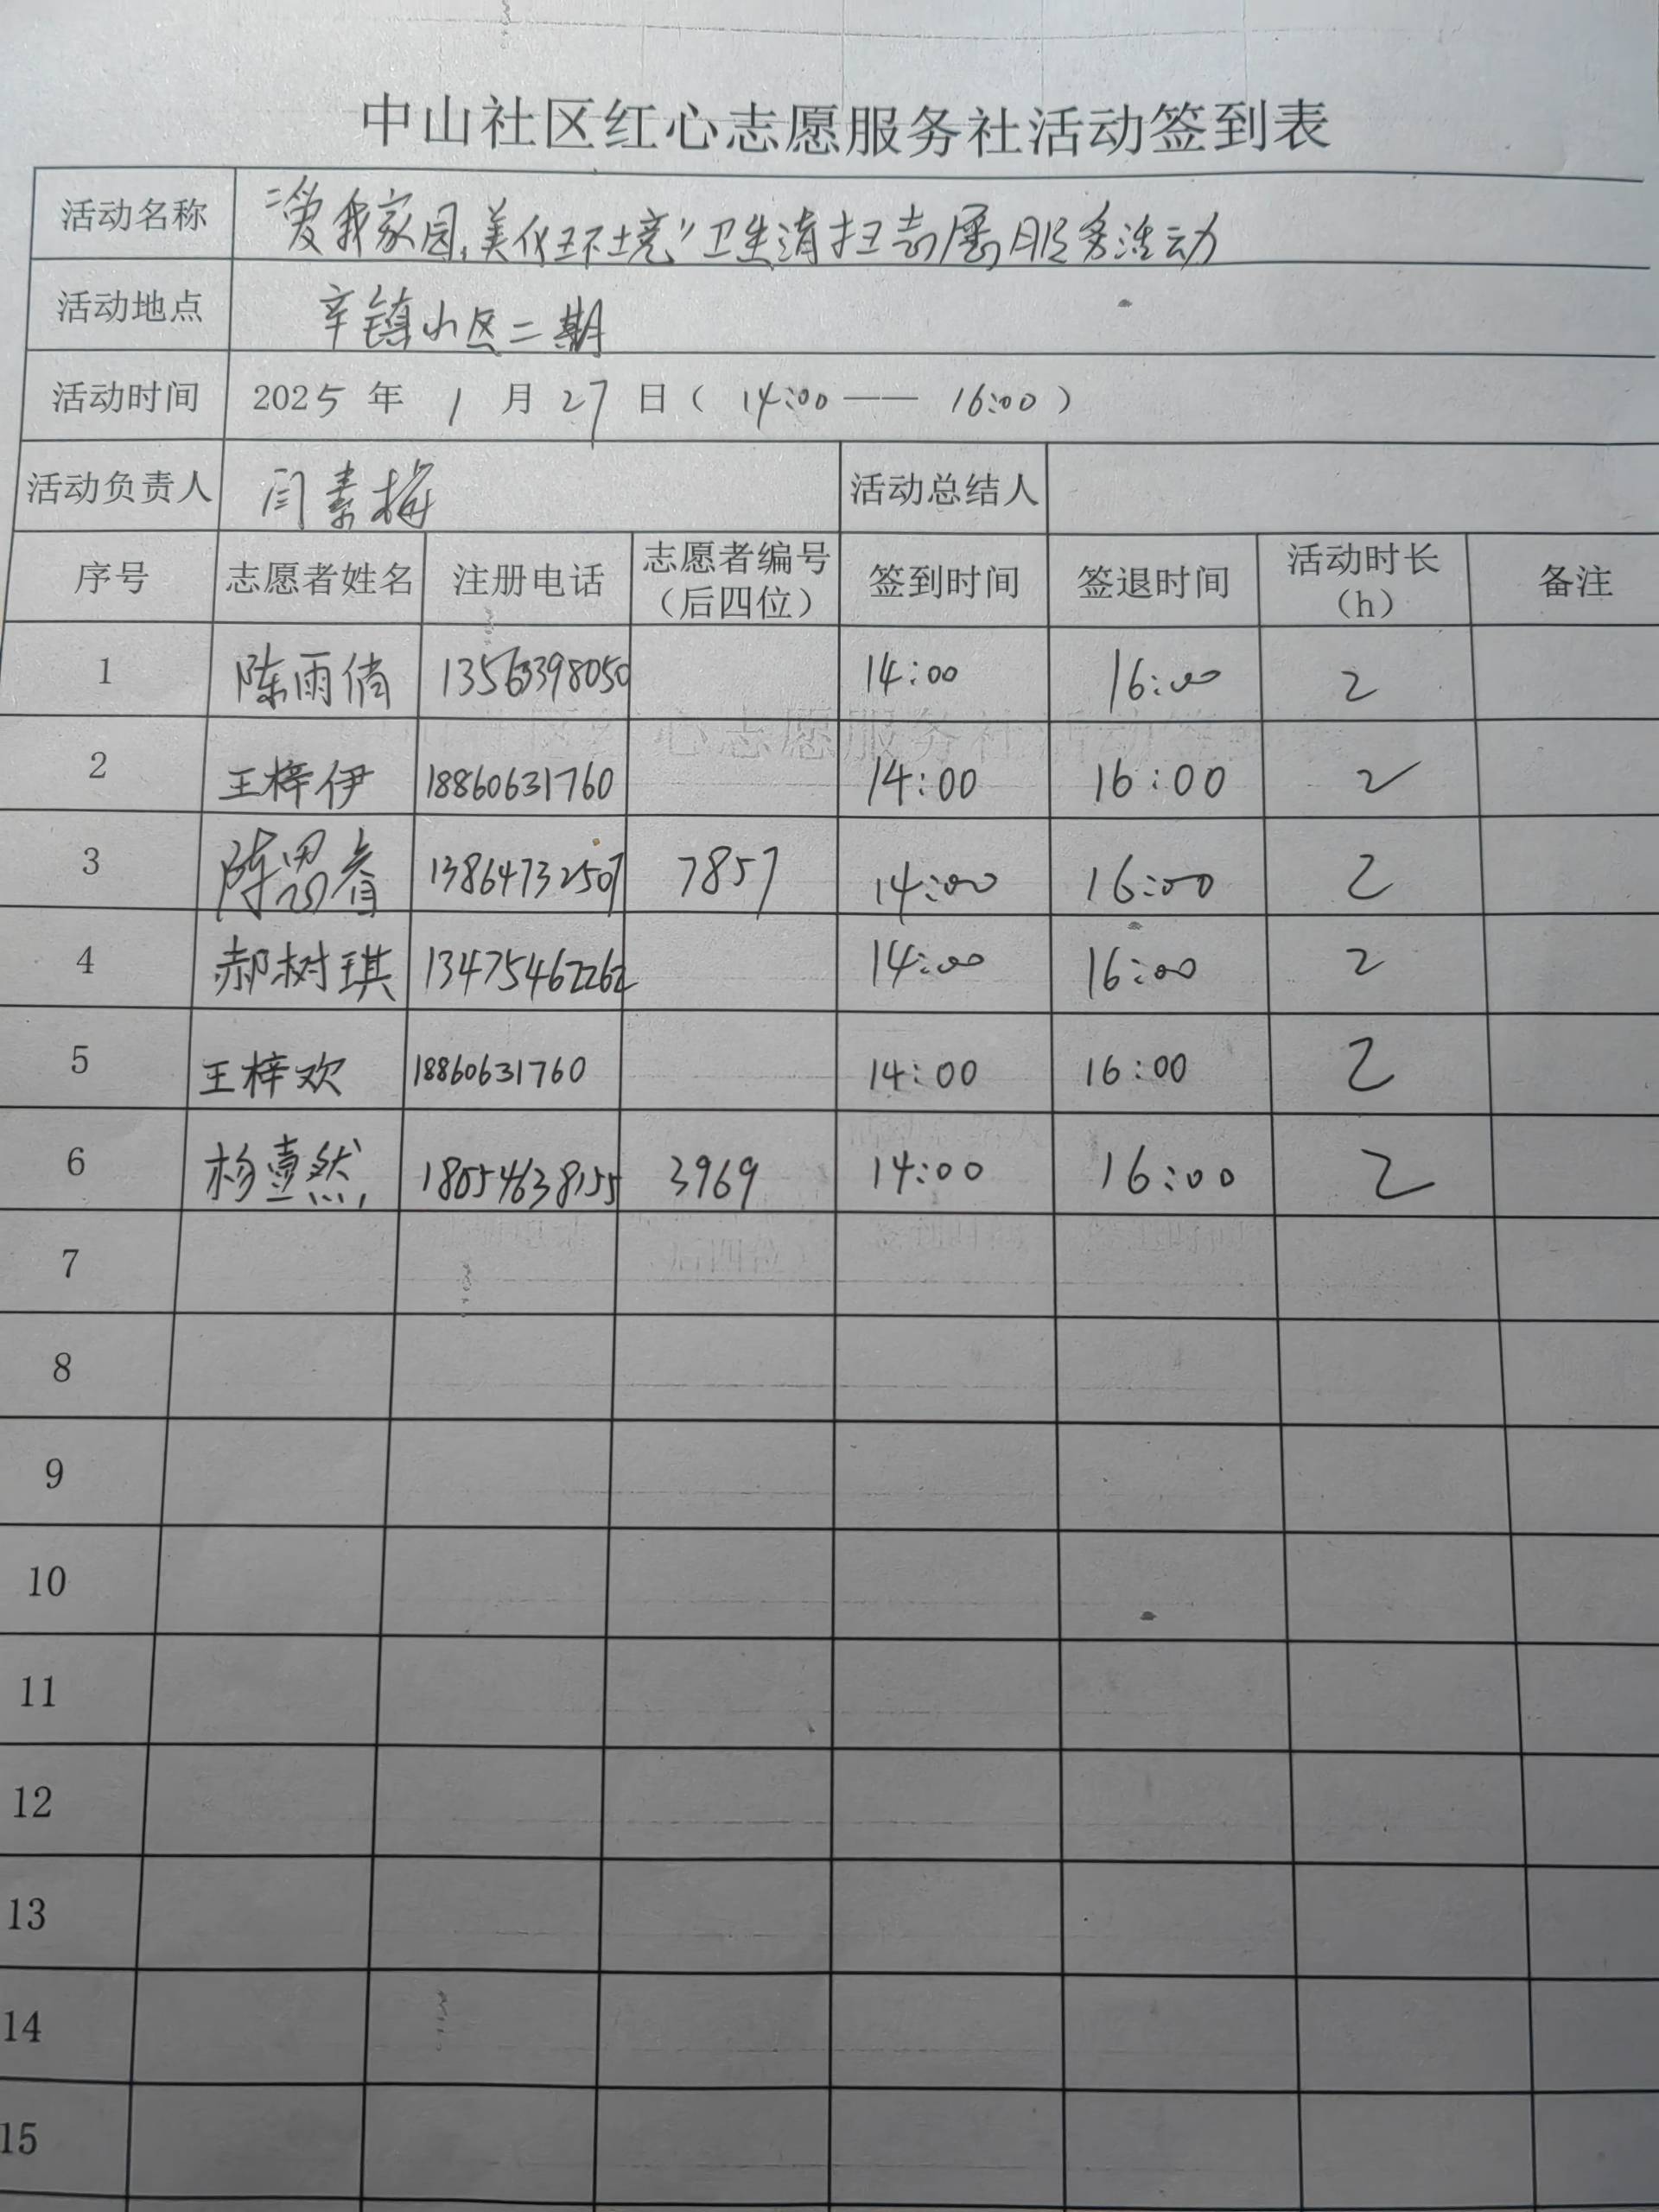 中山社区红心志愿服务社活动签到表
活动名称 “爱我家园,美化环境”卫生清扫志愿服务活动
活动地点 辛镇小区二期
活动时间 2025 年 1 月 27 日 ( 14:00 —— 16:00 )
活动负责人 闫素梅 活动总结人
序号 志愿者姓名 注册电话 志愿者编号(后四位) 签到时间 签退时间 活动时长(h) 备注
1 陈雨倩 13563398050 14:00 16:00 2
2 王梓伊 18860631760 14:00 16:00 2
3 陈思睿 13864732507 7857 14:00 16:00 2
4 郝树琪 13475462262 14:00 16:00 2
5 王梓欢 18860631760 14:00 16:00 2
6 杨壹然 18054638155 3969 14:00 16:00 2
7
8
9
10
11
12
13
14
15